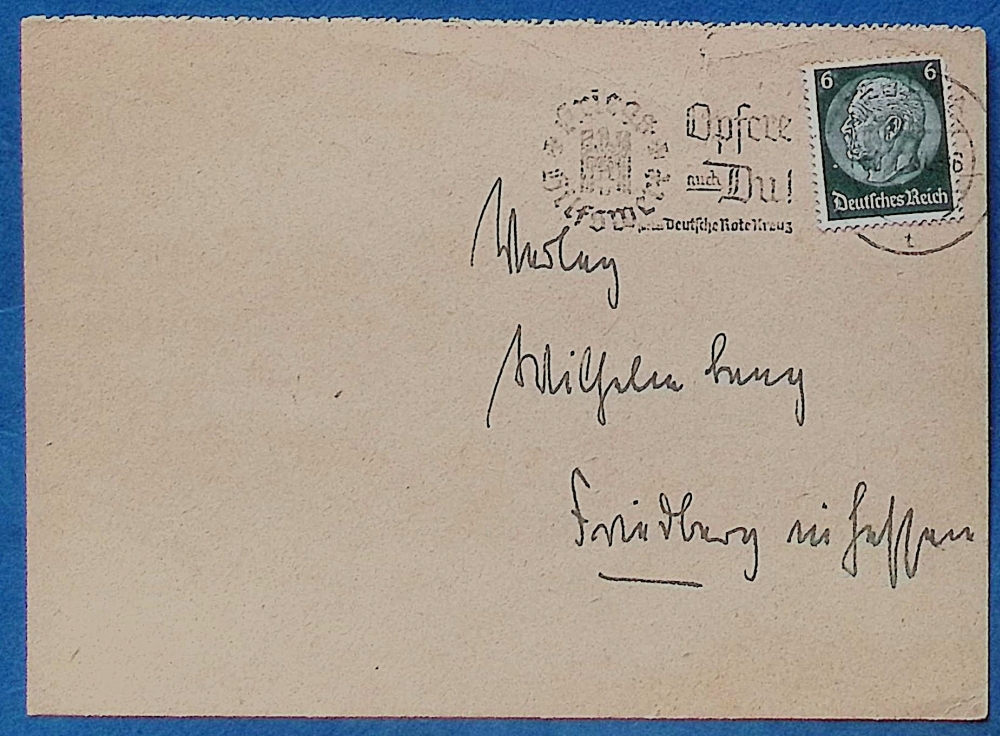 Kriegs
Hilfswerk
Opfere
auch Du!
Deutsche Rote Kreuz
6 6
Deutsches Reich
t
Verlag
Wilhelm
Friedberg in Hessen